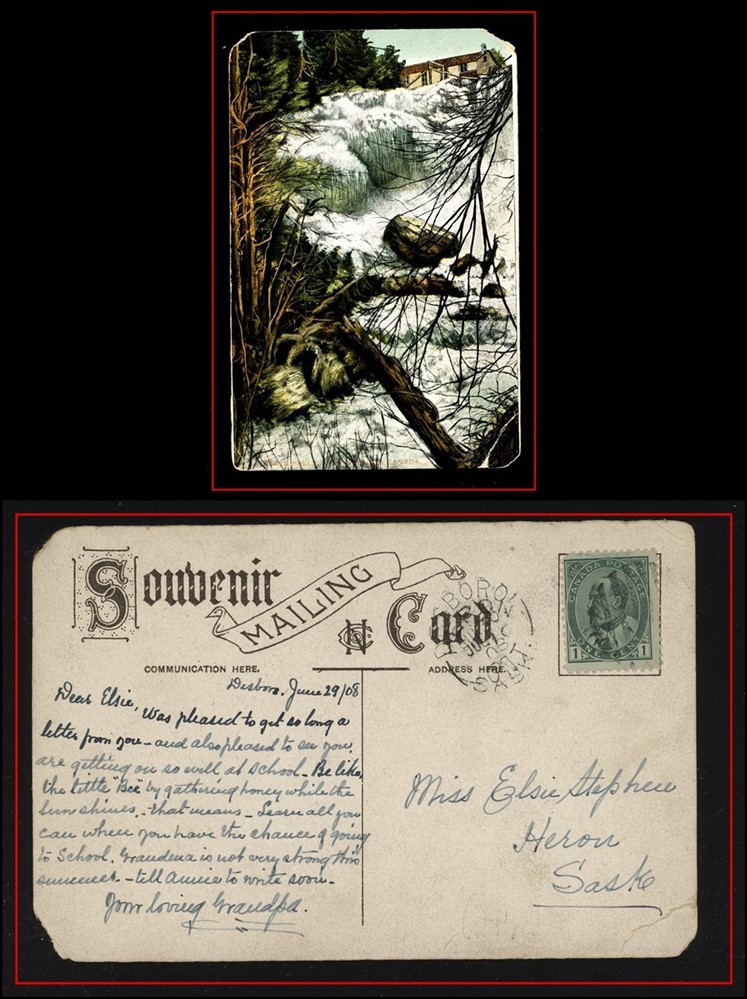 Souvenir
MAILING
Card
COMMUNICATION HERE.
ADDRESS HERE.
CANADA POSTAGE
1 1
ONE CENT
Desboro. June 29/08
Dear Elsie, Was pleased to get so long a
letter from you - and also pleased to see you
are getting on so well at school - Be like
the little "Bee" by gathering honey while the
sun shines. - that means - Learn all you
can when you have the chance of going
to School. Grandma is not very strong this
summer - tell Annie to write soon -
Your loving Grandpa.
Miss Elsie Stephen
Heron
Saske